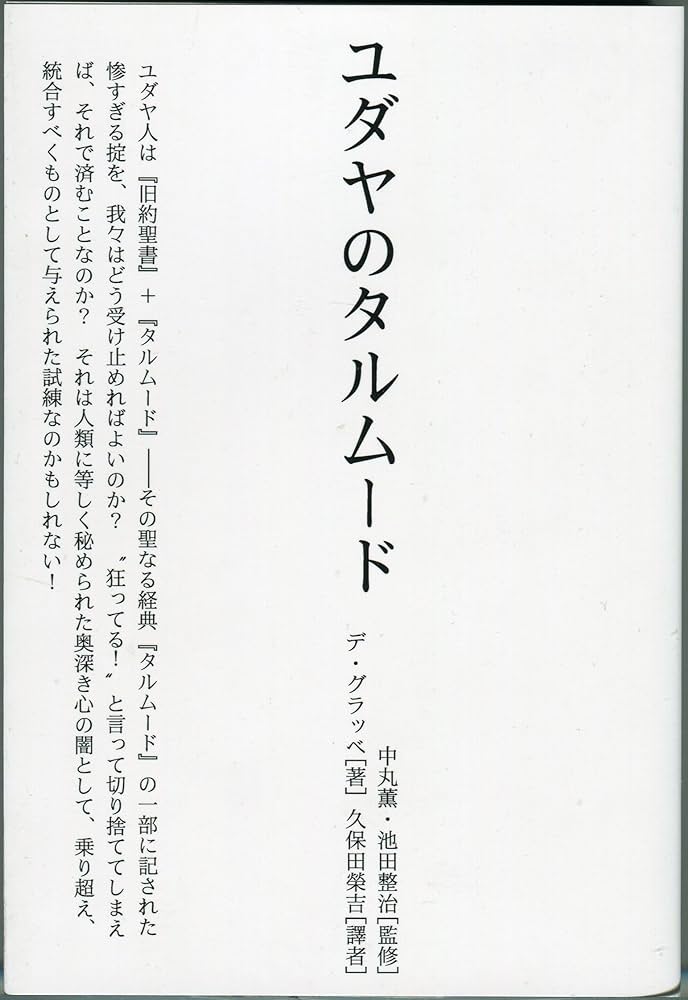 ユダヤのタルムード
中丸薫・池田整治[監修]
デ・グラッベ[著] 久保田榮吉[譯者]
ユダヤ人は『旧約聖書』＋『タルムード』――その聖なる経典『タルムード』の一部に記された
惨すぎる掟を、我々はどう受け止めればよいのか？　〝狂ってる！〟と言って切り捨ててしまえ
ば、それで済むことなのか？　それは人類に等しく秘められた奥深き心の闇として、乗り超え、
統合すべくものとして与えられた試練なのかもしれない！